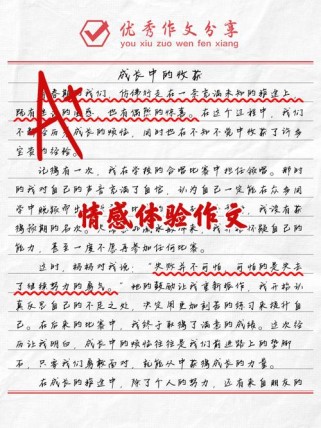 优秀作文分享
you xiu zuo wen fen xiang
成长中的收获
A+
青春期的我们，仿佛行走在一条充满未知的旅途上，
既有
的困惑，也有偶然的惊喜。在这个过程中，我们
不断
成长的烦恼，同时也在不知不觉中收获了许多
宝贵的经验。
让有一次，我在学校的合唱比赛中担任领唱。那时
的我对自己的声音充满了自信，认为自己一定能在众多同
学中脱颖而出
情感体验作文
我没有获
得预期的名次。
怀疑自己的
能力，甚至一度不愿再参加任何比赛。
这时，妈妈对我说："失败并不可怕，可怕的是失去
了继续努力的勇气。"她的鼓励让我重新振作，我开始认
真反思自己的不足之处，决定用更加刻苦的练习来提升自
己。在后来的比赛中，我终于取得了满意的成绩。这次经
历让我明白，成长中的烦恼往往是我们前进路上的垫脚
石，只要我们勇敢面对，就能从中获得成长的力量。
在成长的旅途中，除了个人的努力，还有来自朋友的